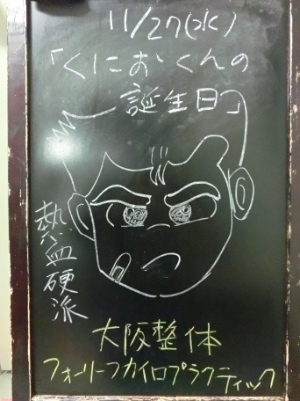 11/27(水)
「くにおくんの
誕生日」
熱血硬派
大阪整体
フォーリーフカイロプラクティック